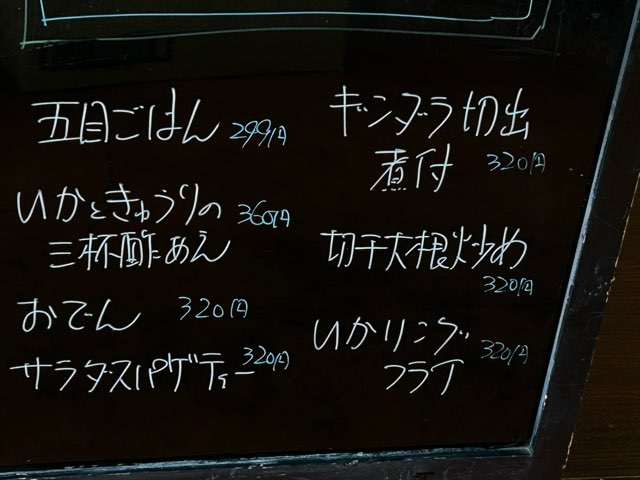 五目ごはん 299円
いかときゅうりの 360円
三杯酢あえ
おでん 320円
サラダスパゲティー 320円
ギンダラ切出
煮付 320円
切干大根炒め
320円
いかリング 320円
フライ